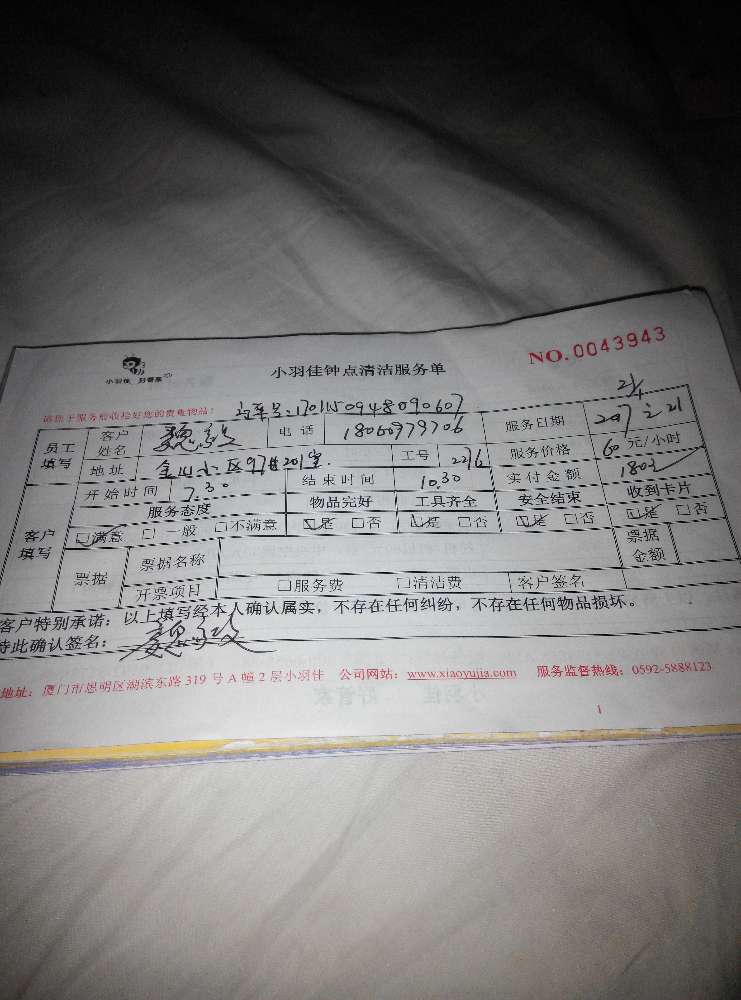 小羽佳 好管家
小羽佳钟点清洁服务单
NO.0043943
请您于服务前收捡好您的贵重物品!
2/1
员工填写 客户姓名 魏 电话 服务日期
地址 金山小区97 201室 工号 2276 服务价格 60 元/小时
开始时间 7.30 结束时间 10.30 实付金额 180
客户填写 服务态度 物品完好 工具齐全 安全结束 收到卡片
☑满意 □一般 □不满意 ☑是 □否 ☑是 □否 ☑是 □否 □是 □否
票据 票据名称 票据金额
开票项目 □服务费 □清洁费 客户签名
客户特别承诺:以上填写经本人确认属实,不存在任何纠纷,不存在任何物品损坏。
特此确认签名:魏
地址:厦门市思明区湖滨东路 319 号 A 幢 2 层小羽佳 公司网站:www.xiaoyujia.com 服务监督热线:0592-5888123
1